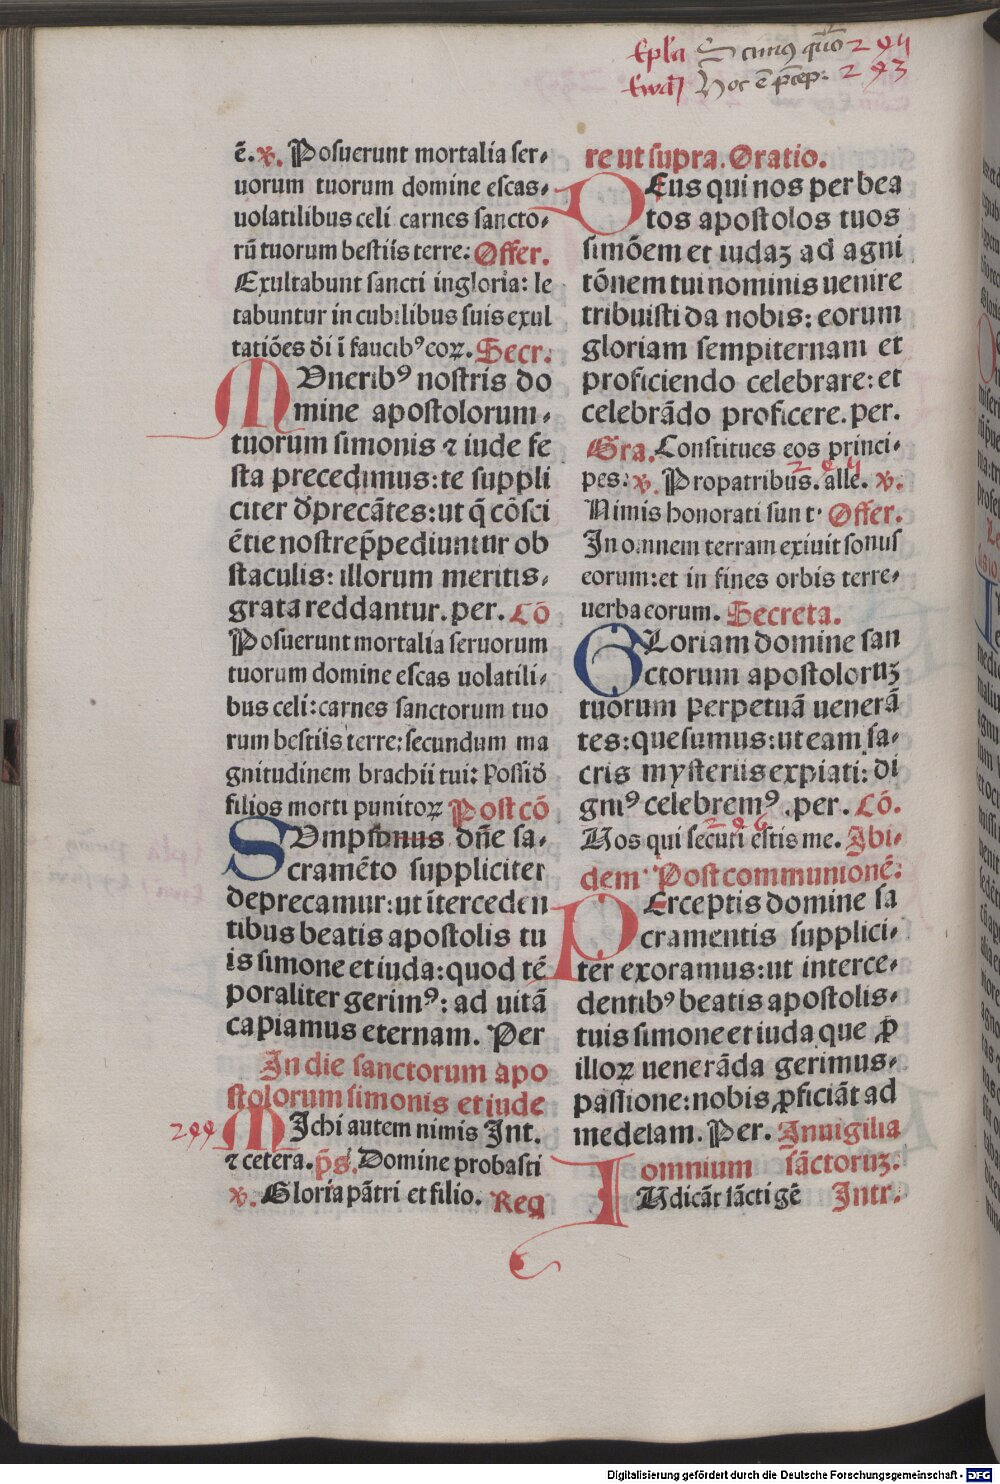 Ep̄la Scimus qm̄ 294
Ewā Hoc ē p̄cep: 293
ē. ꝟ. Posuerunt mortalia ser-
uorum tuorum domine escas-
uolatilibus celi carnes sancto-
rū tuorum bestiis terre: Offer.
Exultabunt sancti in gloria: le
tabuntur in cubilibus suis exul
tatiōes d̄i ī faucibꝰ eoꝝ. Secr:
MUneribꝰ nostris do
mine apostolorum-
tuorum simonis ⁊ iude fe
sta precedimus: te suppli
citer dp̄recātes: ut q̄ cōsci
ētie nostre p̄pediuntur ob
staculis: illorum meritis-
grata reddantur. per. Cō
Posuerunt mortalia seruorum
tuorum domine escas uolatili-
bus celi: carnes sanctorum tuo
rum bestiis terre: secundum ma
gnitudinem brachii tui: possid̄
filios morti punitoꝝ Post cō
SUmpto dn̄e sa-
cramēto suppliciter
deprecamur: ut īterceden
tibus beatis apostolis tu
is simone et iuda: quod tē
poraliter gerimꝰ: ad uitā
capiamus eternam. Per
In die sanctorum apo
stolorum simonis et iude
299 MIchi autem nimis Int.
⁊ cetera. p̄s. Domine probasti
ꝟ. Gloria pātri et filio. Req
re ut supra. Oratio.
DEus qui nos per bea
tos apostolos tuos
simōem et iudaꝫ ad agni
tōnem tui nominis uenire
tribuisti da nobis: eorum
gloriam sempiternam et
proficiendo celebrare: et
celebrādo proficere. per.
Gra. Constitues eos princi-
pes: ꝟ. Pro patribus. alle. ꝟ.
294
Nimis honorati sunt· Offer.
In omnem terram exiuit sonus
eorum: et in fines orbis terre-
uerba eorum. Secreta.
GLoriam domine san
ctorum apostoloruꝫ
tuorum perpetuā uenerā
tes: quesumus: ut eam sa-
cris mysteriis expiati: di
gniꝰ celebremꝰ. per. Cō.
296
Uos qui secuti estis me. Ibi-
dem· Post communionē:
PErceptis domine sa
cramentis supplici-
ter exoramus: ut interce-
dentibꝰ beatis apostolis-
tuis simone et iuda que ꝓ
illoꝝ uenerāda gerimus-
passione: nobis ꝓficiāt ad
medelam. Per. In uigilia
omnium sāctoruꝫ.
IUdicāt sācti gē Intr.
Digitalisierung gefördert durch die Deutsche Forschungsgemeinschaft - DFG